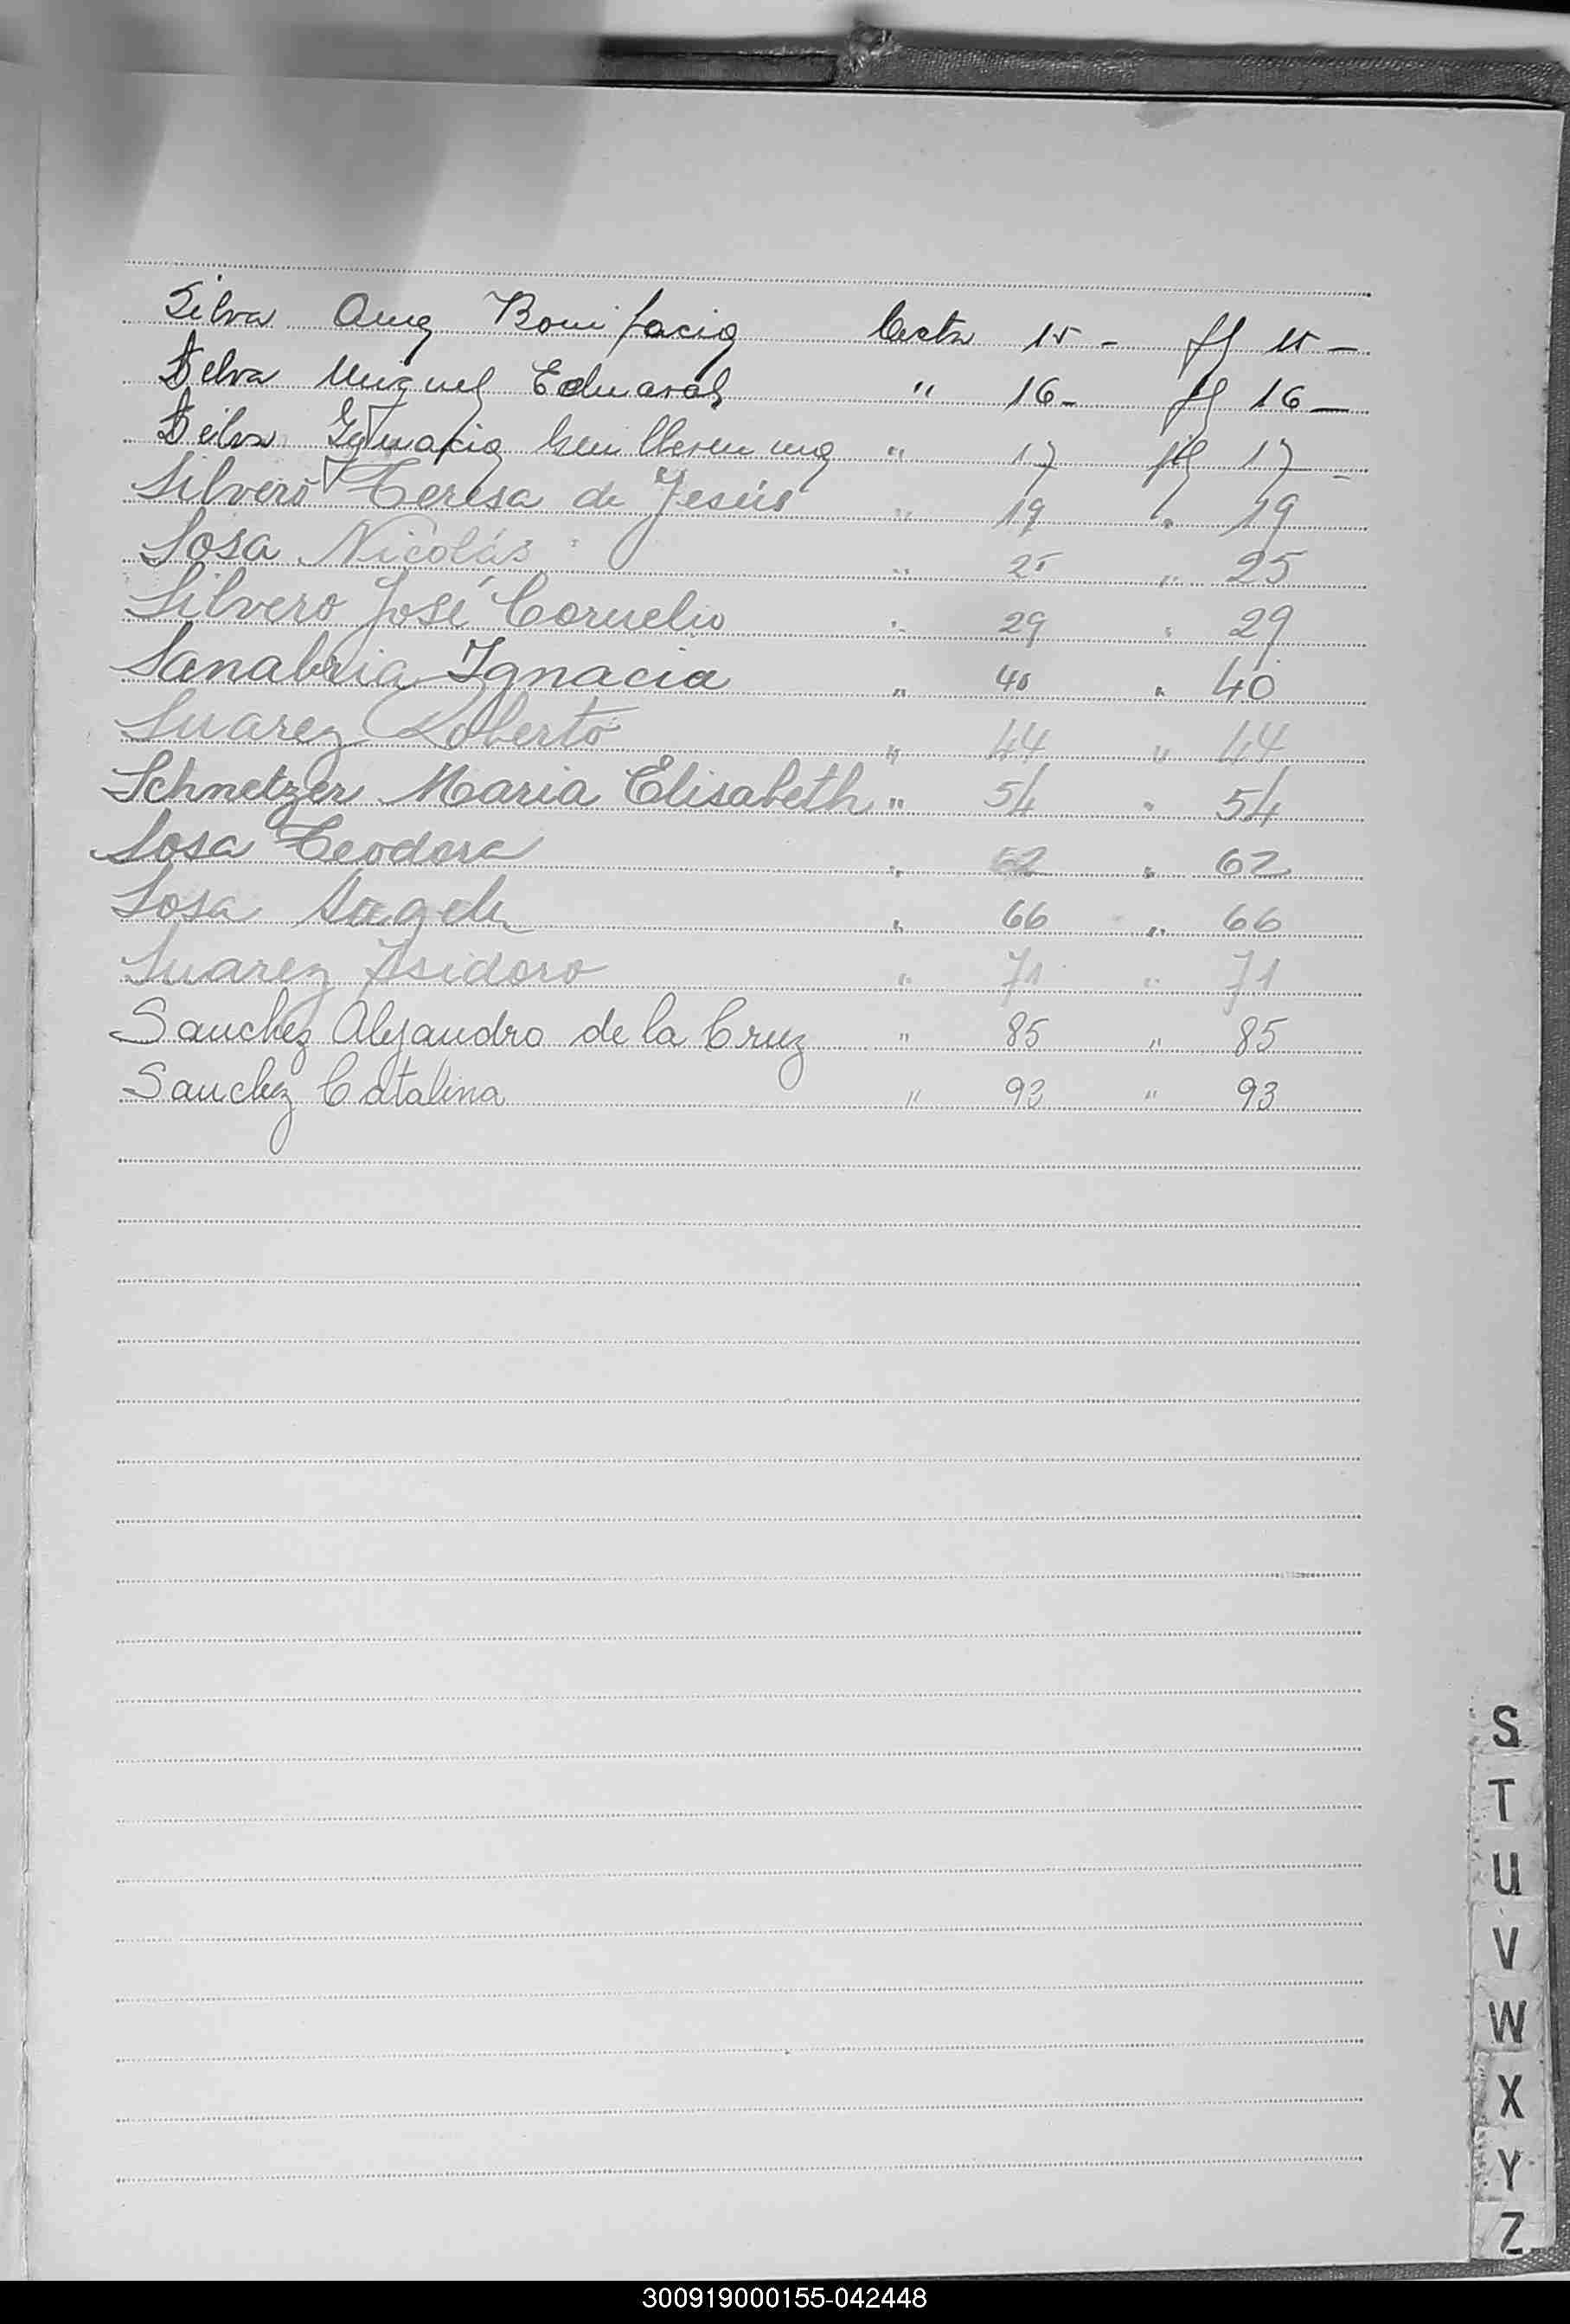 Silva Bonifacio Acta 15 - fl 15 -
Silva Miguel Eduardo " 16 - fl 16 -
Silva Ignacio " 17 fl 17 -
Silvero Teresa de Jesús " 19 " 19
Sosa Nicolás " 25 " 25
Silvero José Cornelio " 29 " 29
Sanabria Ignacia " 40 " 40
Suarez Roberto " 44 " 44
Schnetzer Maria Elisabeth " 54 " 54
Sosa Teodora " 62 " 62
Sosa " 66 " 66
Suarez Isidoro " 71 " 71
Sanchez Alejandro de la Cruz " 85 " 85
Sanchez Catalina " 93 " 93
S
T
U
V
W
X
Y
Z
300919000155-042448